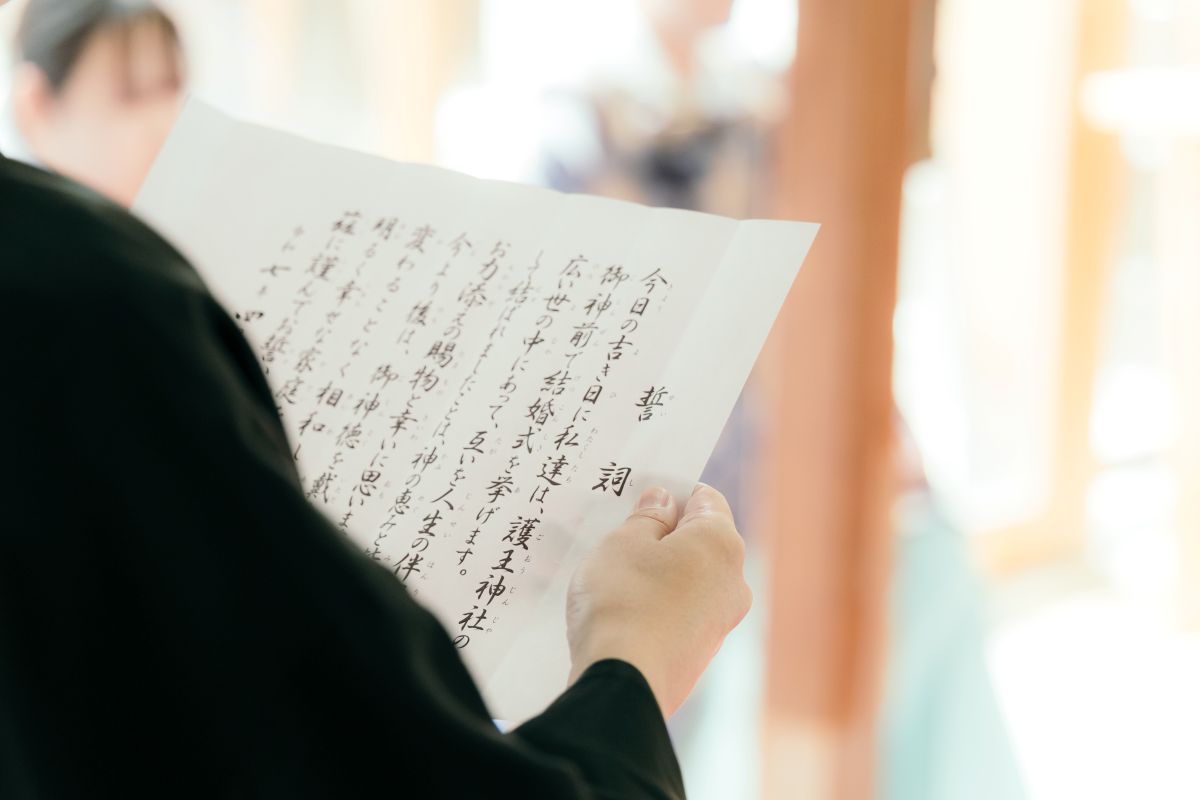 誓詞
今日の吉き日に私達は、護王神社の
御神前で結婚式を挙げます。
広い世の中にあって、互いを人生の伴
して結ばれましたことは、神の恵みと
お力添えの賜物と幸いに思いま
今より後は、御神徳を戴
変わることなく相和し
明るく幸せな家庭を
謹んでお誓い
令和七年 四